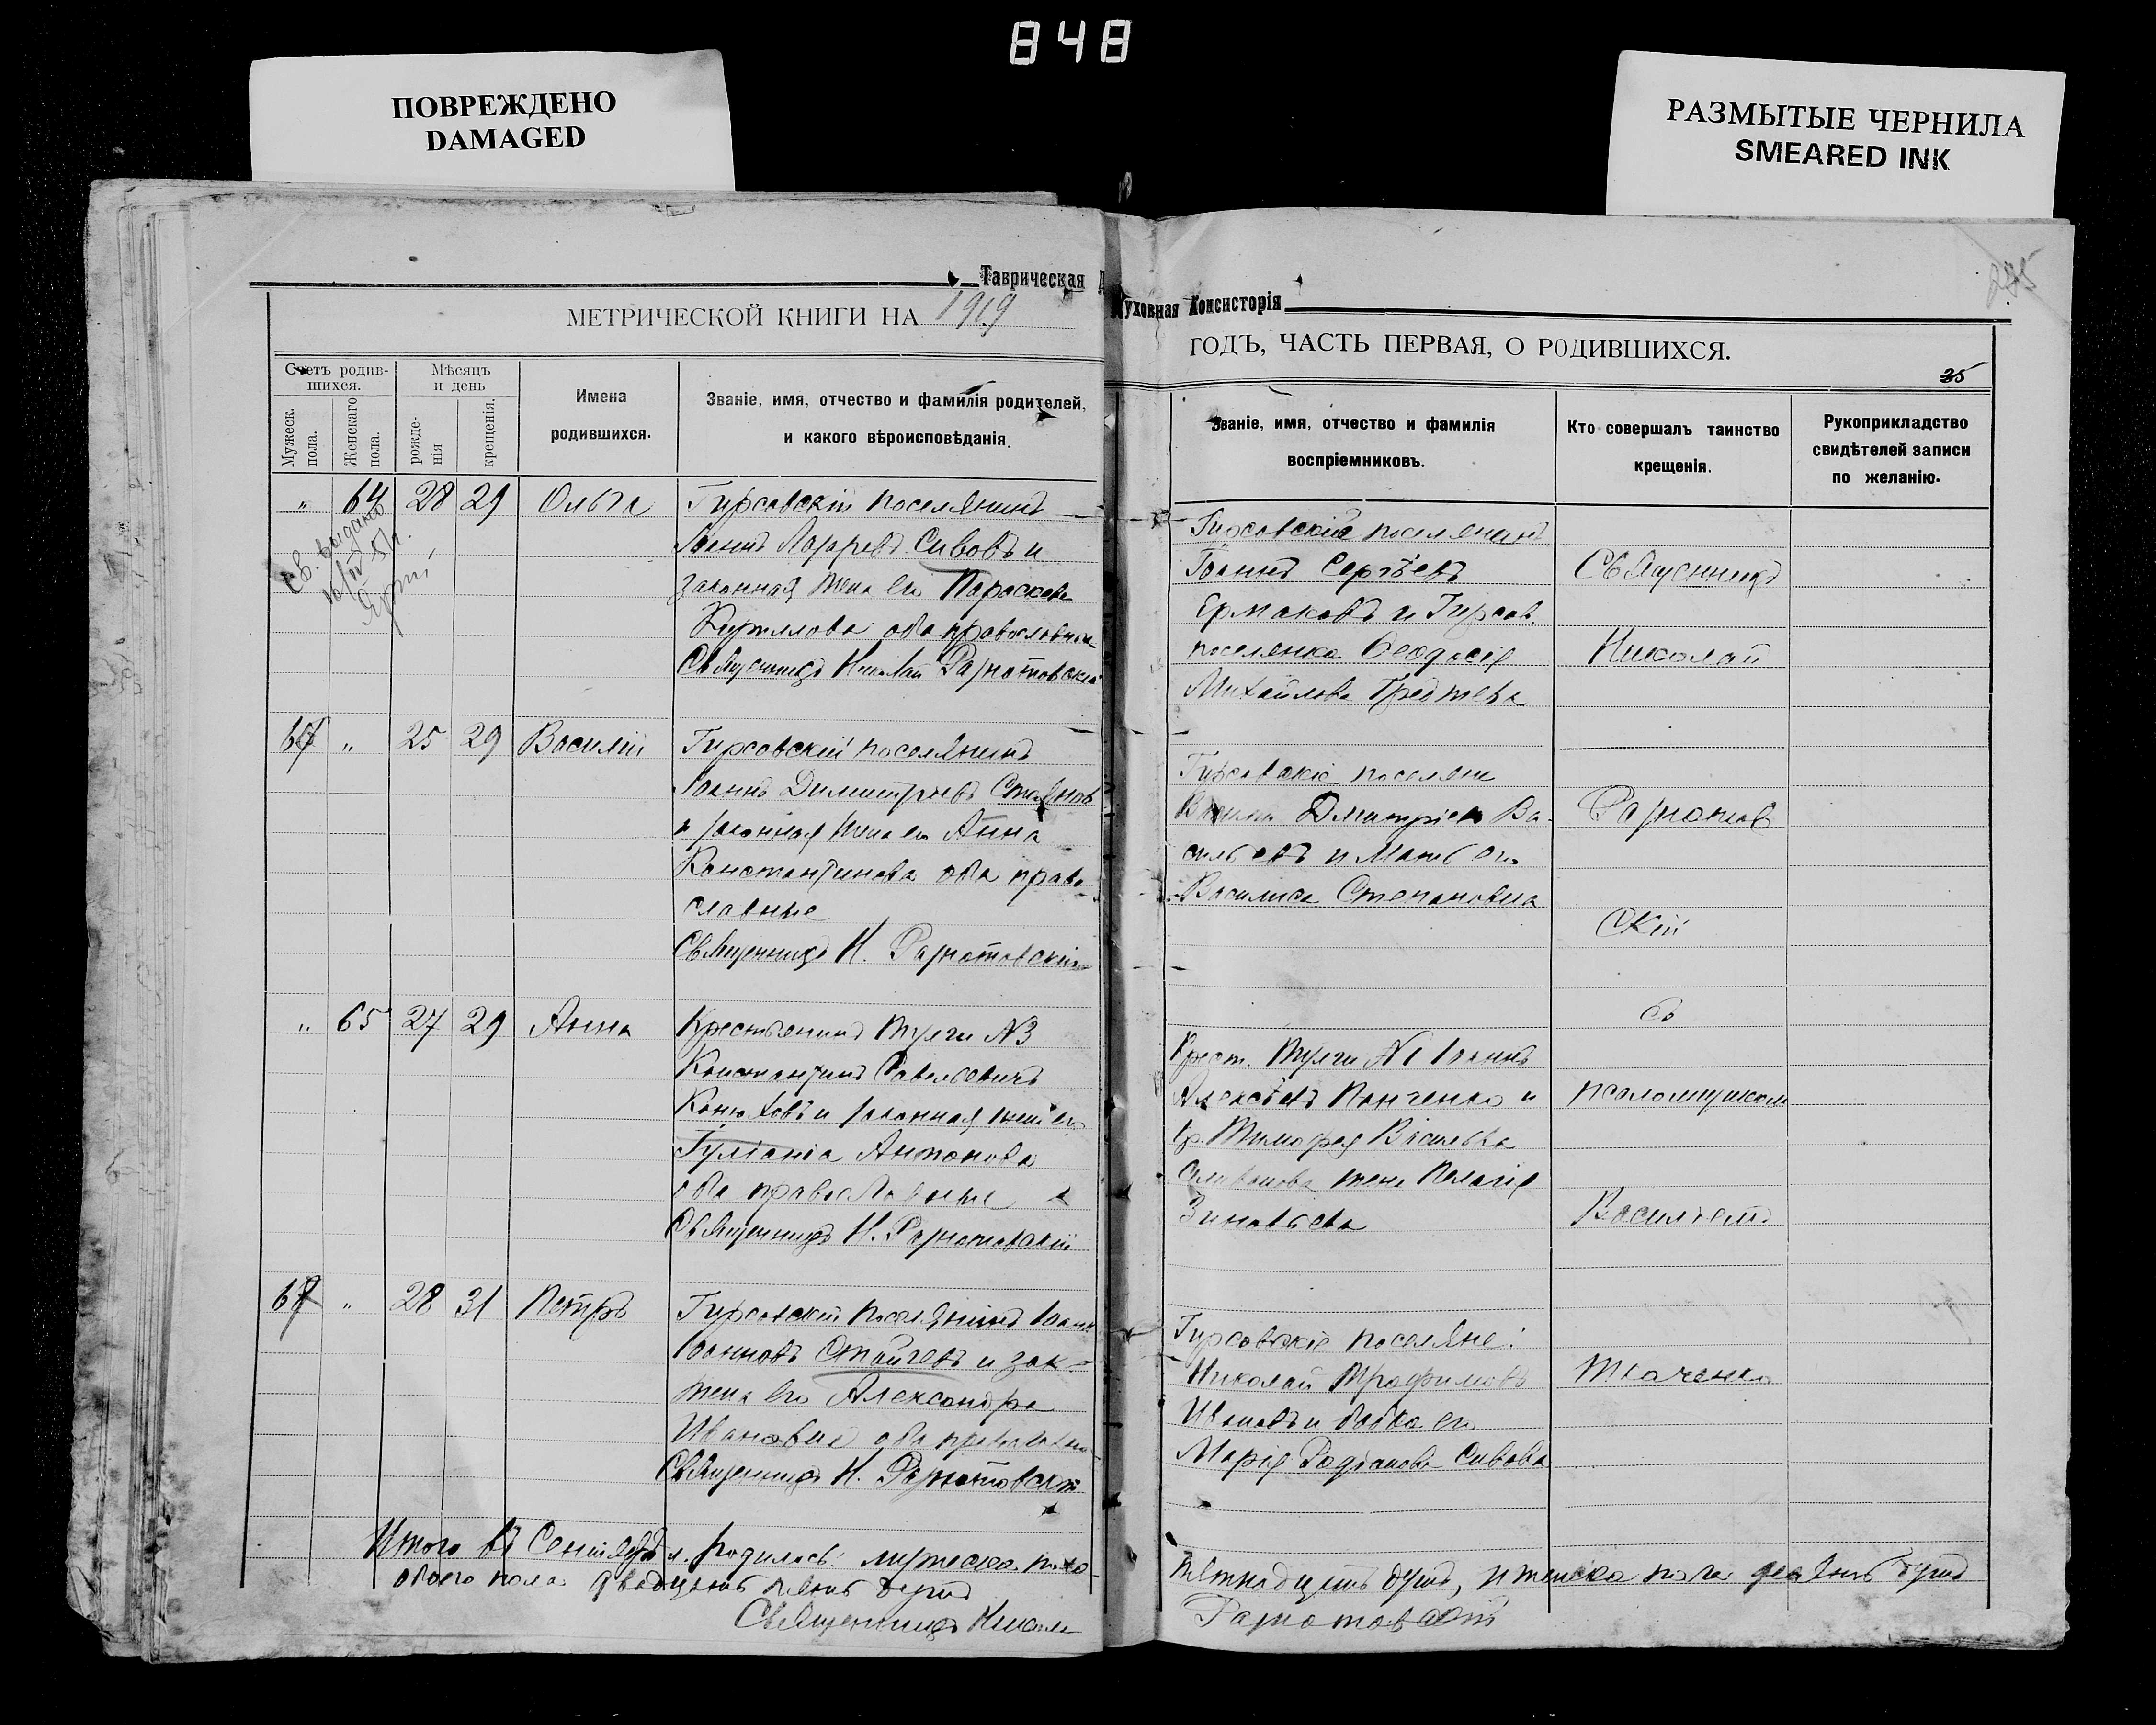 848
ПОВРЕЖДЕНО
DAMAGED
РАЗМЫТЫЕ ЧЕРНИЛА
SMEARED INK
Таврическая Духовная Консисторія
МЕТРИЧЕСКОЙ КНИГИ НА 1919
ГОДЪ, ЧАСТЬ ПЕРВАЯ, О РОДИВШИХСЯ.
285
35
Счетъ родив-
шихся.
Мужеск.
пола.
Женскаго
пола.
Мѣсяцъ
и день
рожде-
нія
крещенія.
Имена
родившихся.
Званіе, имя, отчество и фамилія родителей,
и какого вѣроисповѣданія.
Званіе, имя, отчество и фамилія
воспріемниковъ.
Кто совершалъ таинство
крещенія.
Рукоприкладство
свидѣтелей записи
по желанію.
„ 64 28 29 Ольга
Св. выдано
Гирсовскій поселянинъ
Іоаннъ Лазаревъ Сивовъ и
законная жена его Параскева
Кириллова оба православные
Священникъ Николай
Гирсовскіе поселянинъ
Іоаннъ Сергѣевъ
Ермаковъ и Гирсов.
поселянка Ѳеодосія
Михайлова
Священникъ
Николай
„ 25 29 Василій
Гирсовскій поселянинъ
Іоаннъ Димитріевъ Стояновъ
и законная жена его Анна
Константинова оба право
славные
Священникъ Н.
Гирсовскіе поселяне
Димитріевъ Ва-
сильевъ и мать его
Василиса Степановна
скій
„ 65 27 29 Анна
Крестьянинъ №3
Константинъ Савельевичъ
Конюховъ и законная жена его
Іуліанія Антонова
оба православные
Священникъ Н.
Крест. №1 Іоаннъ
Алексѣевъ Панченко и
кр. Тимофея Васильева
жена Пелагія
Зиновьева
съ
псаломщикомъ
Василіемъ
„ 28 31 Петръ
Гирсовскій поселянинъ Іоаннъ
Іоанновъ Стойчевъ и зак.
жена его Александра
Ивановна оба православные
Священникъ Н.
Гирсовскіе поселяне:
Николай Трофимовъ
Ивановъ и бабка его
Марія Родіонова Сивова
Ткаченко
Итого въ Сентябрѣ м. родилось: мужеска пола
пятнадцать душъ, и женска пола девять душъ
обоего пола двадцать душъ
Священникъ Николай